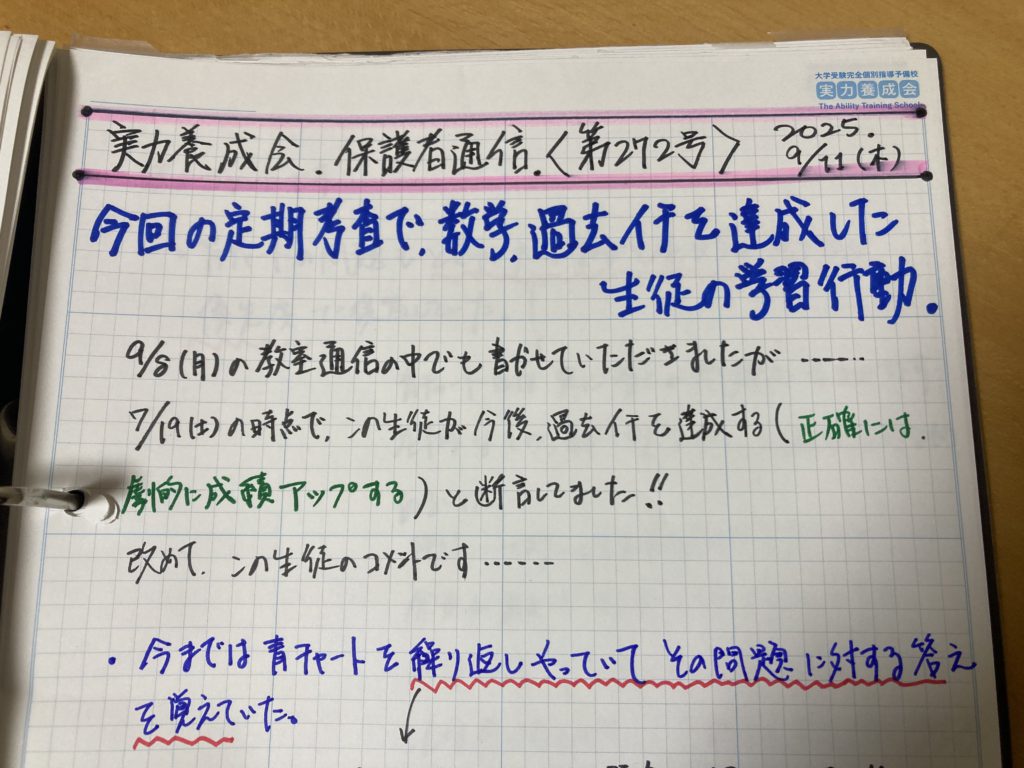 大学受験完全個別指導予備校
実力養成会
The Ability Training School
実力養成会.保護者通信.〈第272号〉
2025.
9/11(木)
今回の定期考査で、数学、過去イチを達成した
生徒の学習行動.
9/8(月)の教室通信の中でも書かせていただきましたが……
7/19(土)の時点で、この生徒が今後、過去イチを達成する(正確には、
劇的に成績アップする)と断言してました!!
改めて、この生徒のコメントです……
・今までは青チャートを繰り返しやっていてその問題に対する答え
を覚えていた。